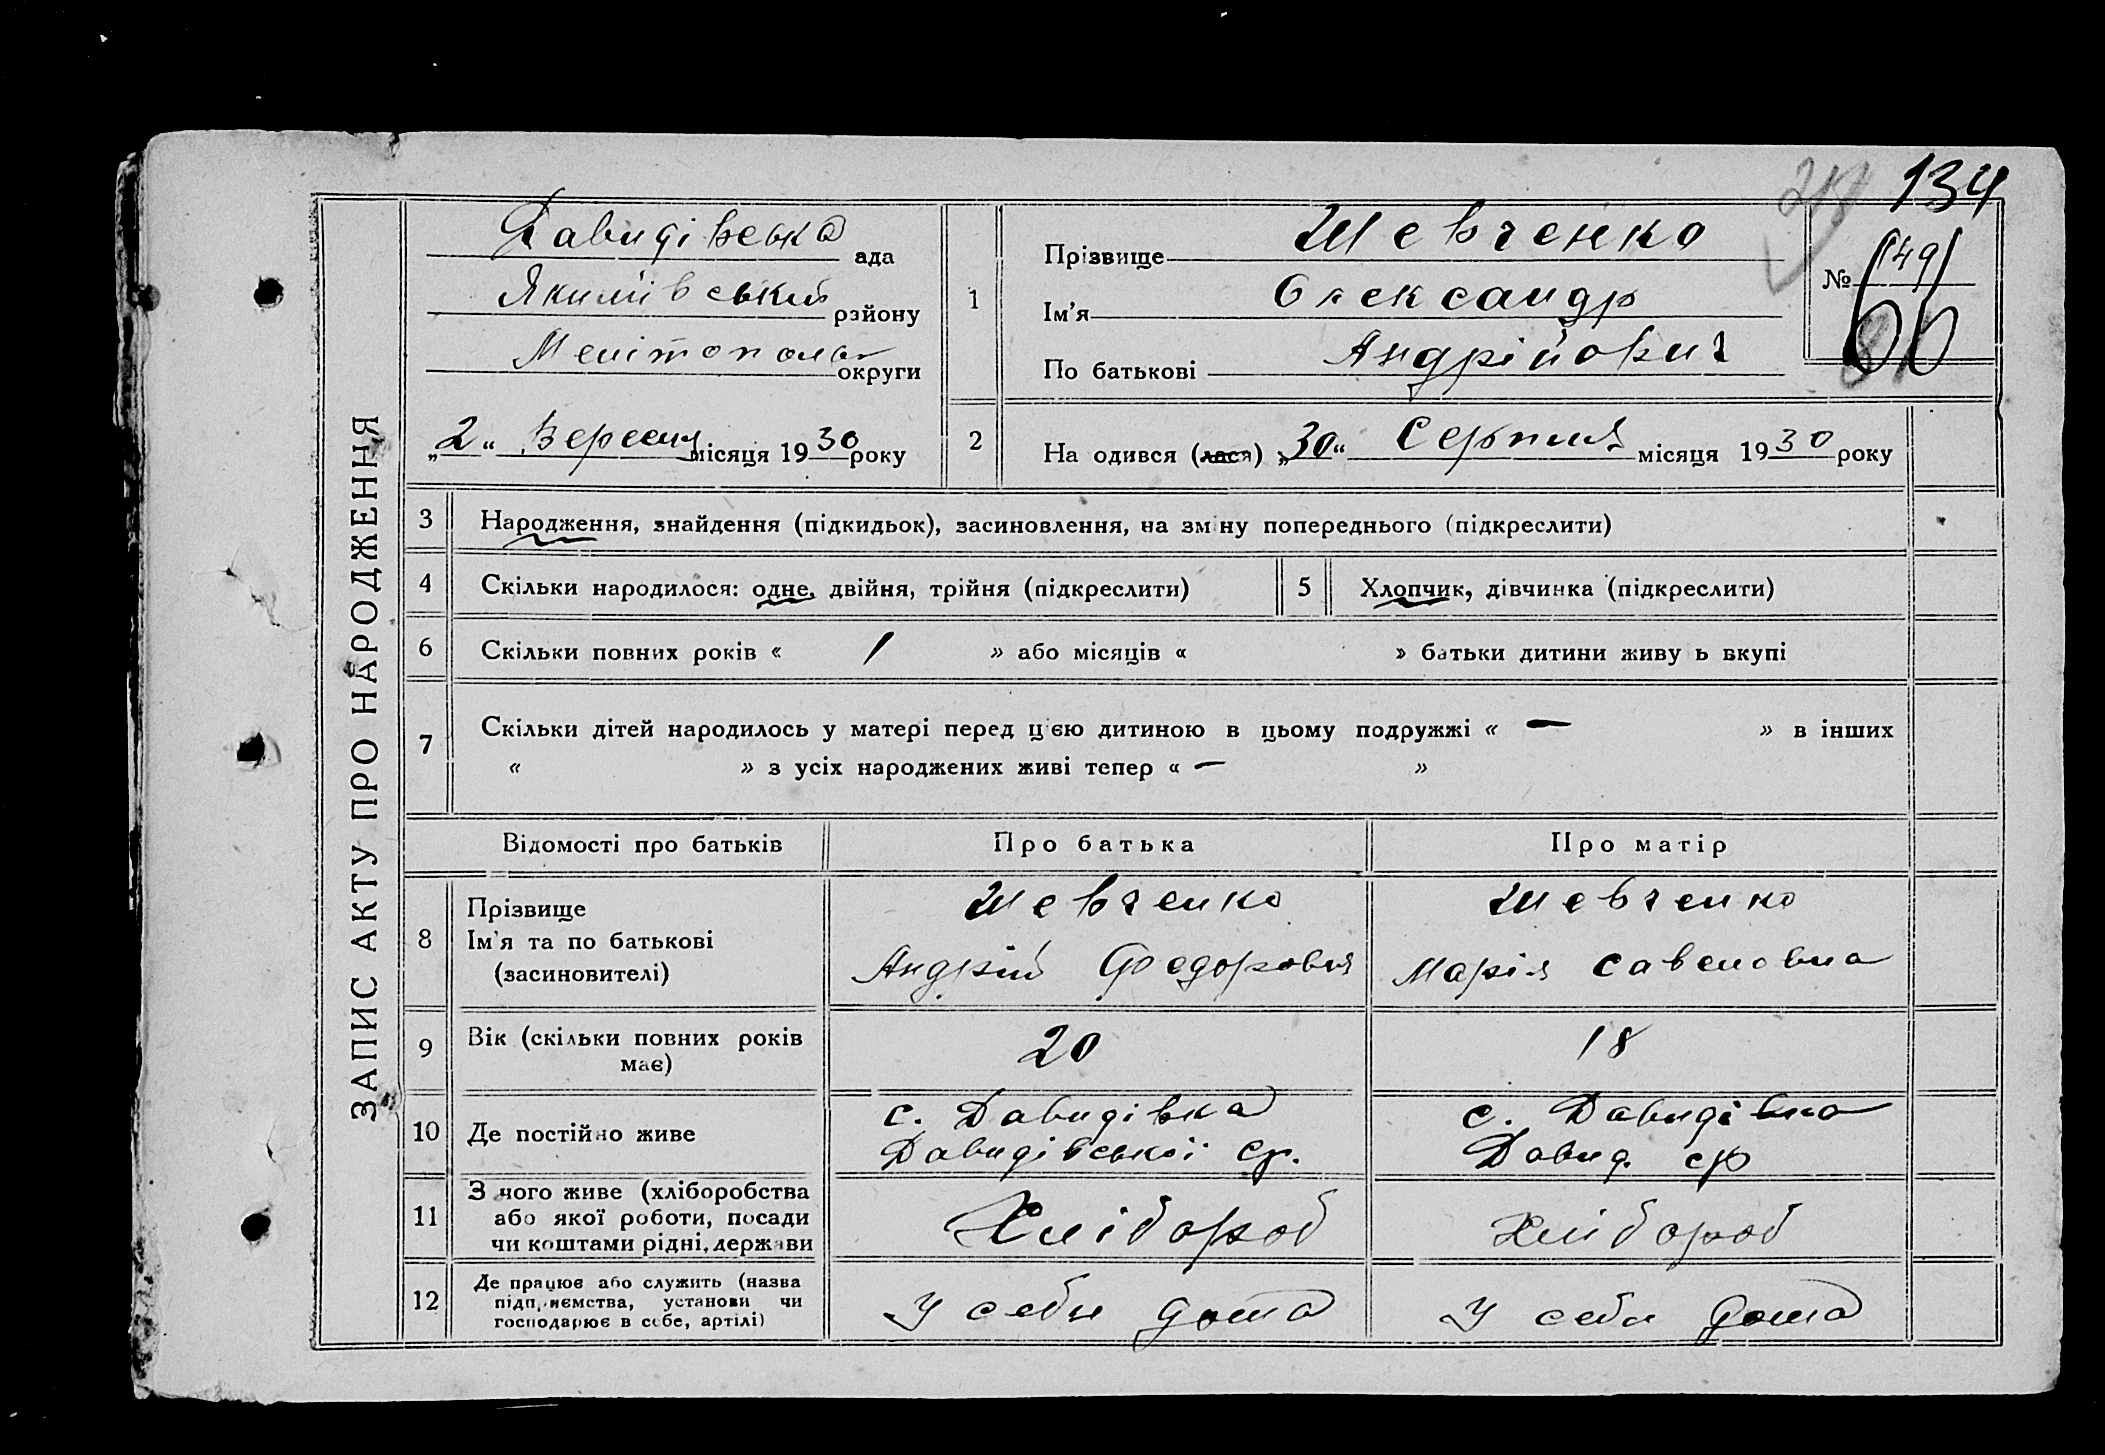 134
ЗАПИС АКТУ ПРО НАРОДЖЕННЯ
Давидівська ада
Якимівський району
Мелітополь округи
„2“ Вересня місяця 1930 року
1
Прізвище Шевченко
Ім'я Олександр
По батькові Андрійович
№ (149)
2 На одився (лася) „30“ Серпня місяця 1930 року
3 Народження, знайдення (підкидьок), засиновлення, на зміну попереднього (підкреслити)
4 Скільки народилося: одне, двійня, трійня (підкреслити) 5 Хлопчик, дівчинка (підкреслити)
6 Скільки повних років « 1 » або місяців « » батьки дитини живу ь вкупі
7 Скільки дітей народилось у матері перед цією дитиною в цьому подружжі « — » в інших
« » з усіх народжених живі тепер « — »
Відомості про батьків Про батька Про матір
8 Прізвище Шевченко Шевченко
Ім'я та по батькові Андрій Федорович Марія Савеловна
(засиновителі)
9 Вік (скільки повних років має) 20 18
10 Де постійно живе с. Давидівка с. Давидівка
Давидівської ср. Давид. ср
11 З чого живе (хліборобства Хлібороб Хлібороб
або якої роботи, посади
чи коштами рідні, держави
12 Де працює або служить (назва У себе дома У себе дома
підприємства, установи чи
господарює в себе, артілі)